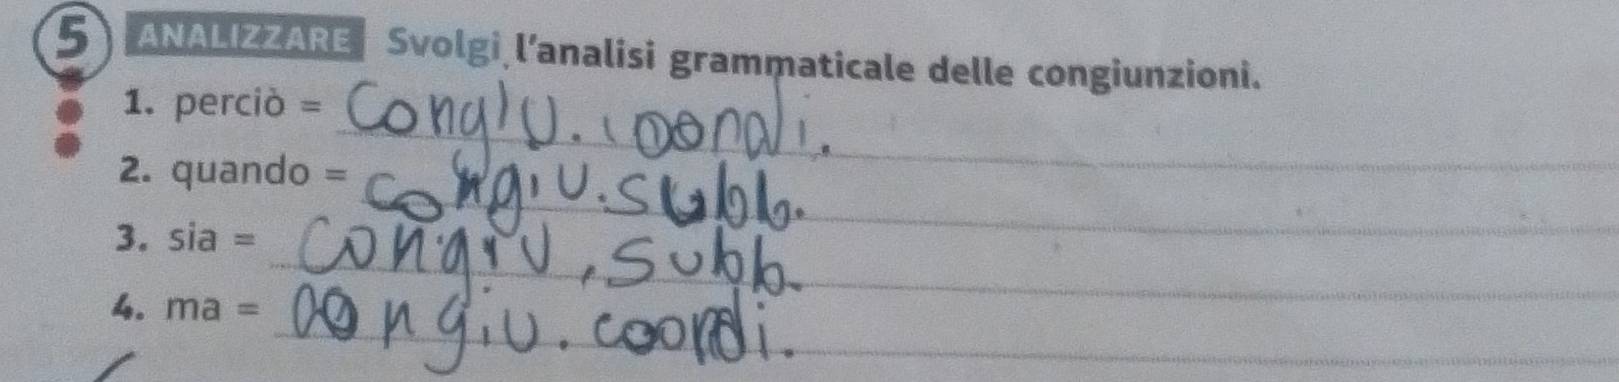 5 ANALIZZARE Svolgi l'analisi grammaticale delle congiunzioni.
1. perciò = Congiu. coordi.
2. quando = congiu. subb.
3. sia = congiu. subb.
4. ma = congiu. coordi.